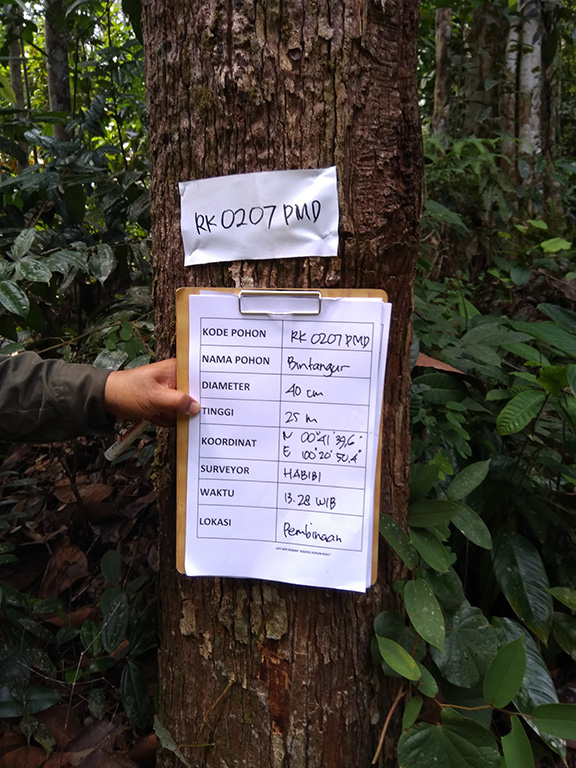 RK 0207 PMD
KODE POHON RK 0207 PMD
NAMA POHON Bintangur
DIAMETER 40 cm
TINGGI 25 m
KOORDINAT N 00°41'39,6"
E 100°20'50,4"
SURVEYOR HABIBI
WAKTU 13.28 WIB
LOKASI Pembinaan